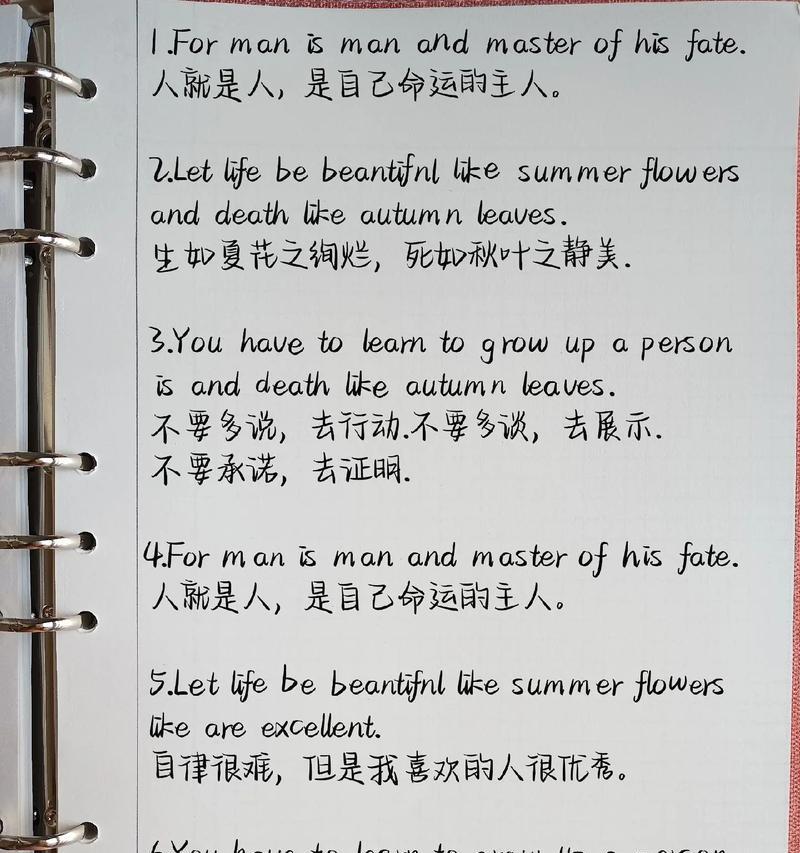 1.For man is man and master of his fate.
人就是人，是自己命运的主人。
2.Let life be beantifnl like summer flowers
and death like autumn leaves.
生如夏花之绚烂，死如秋叶之静美.
3.You have to learn to grow up a person
is and death like autumn leaves.
不要多说，去行动.不要多谈，去展示.
不要承诺，去证明.
4.For man is man and master of his fate.
人就是人，是自己命运的主人。
5.Let life be beantifnl like summer flowers
like are excellent.
自律很难，但是我喜欢的人很优秀。
6.You have to learn to grow